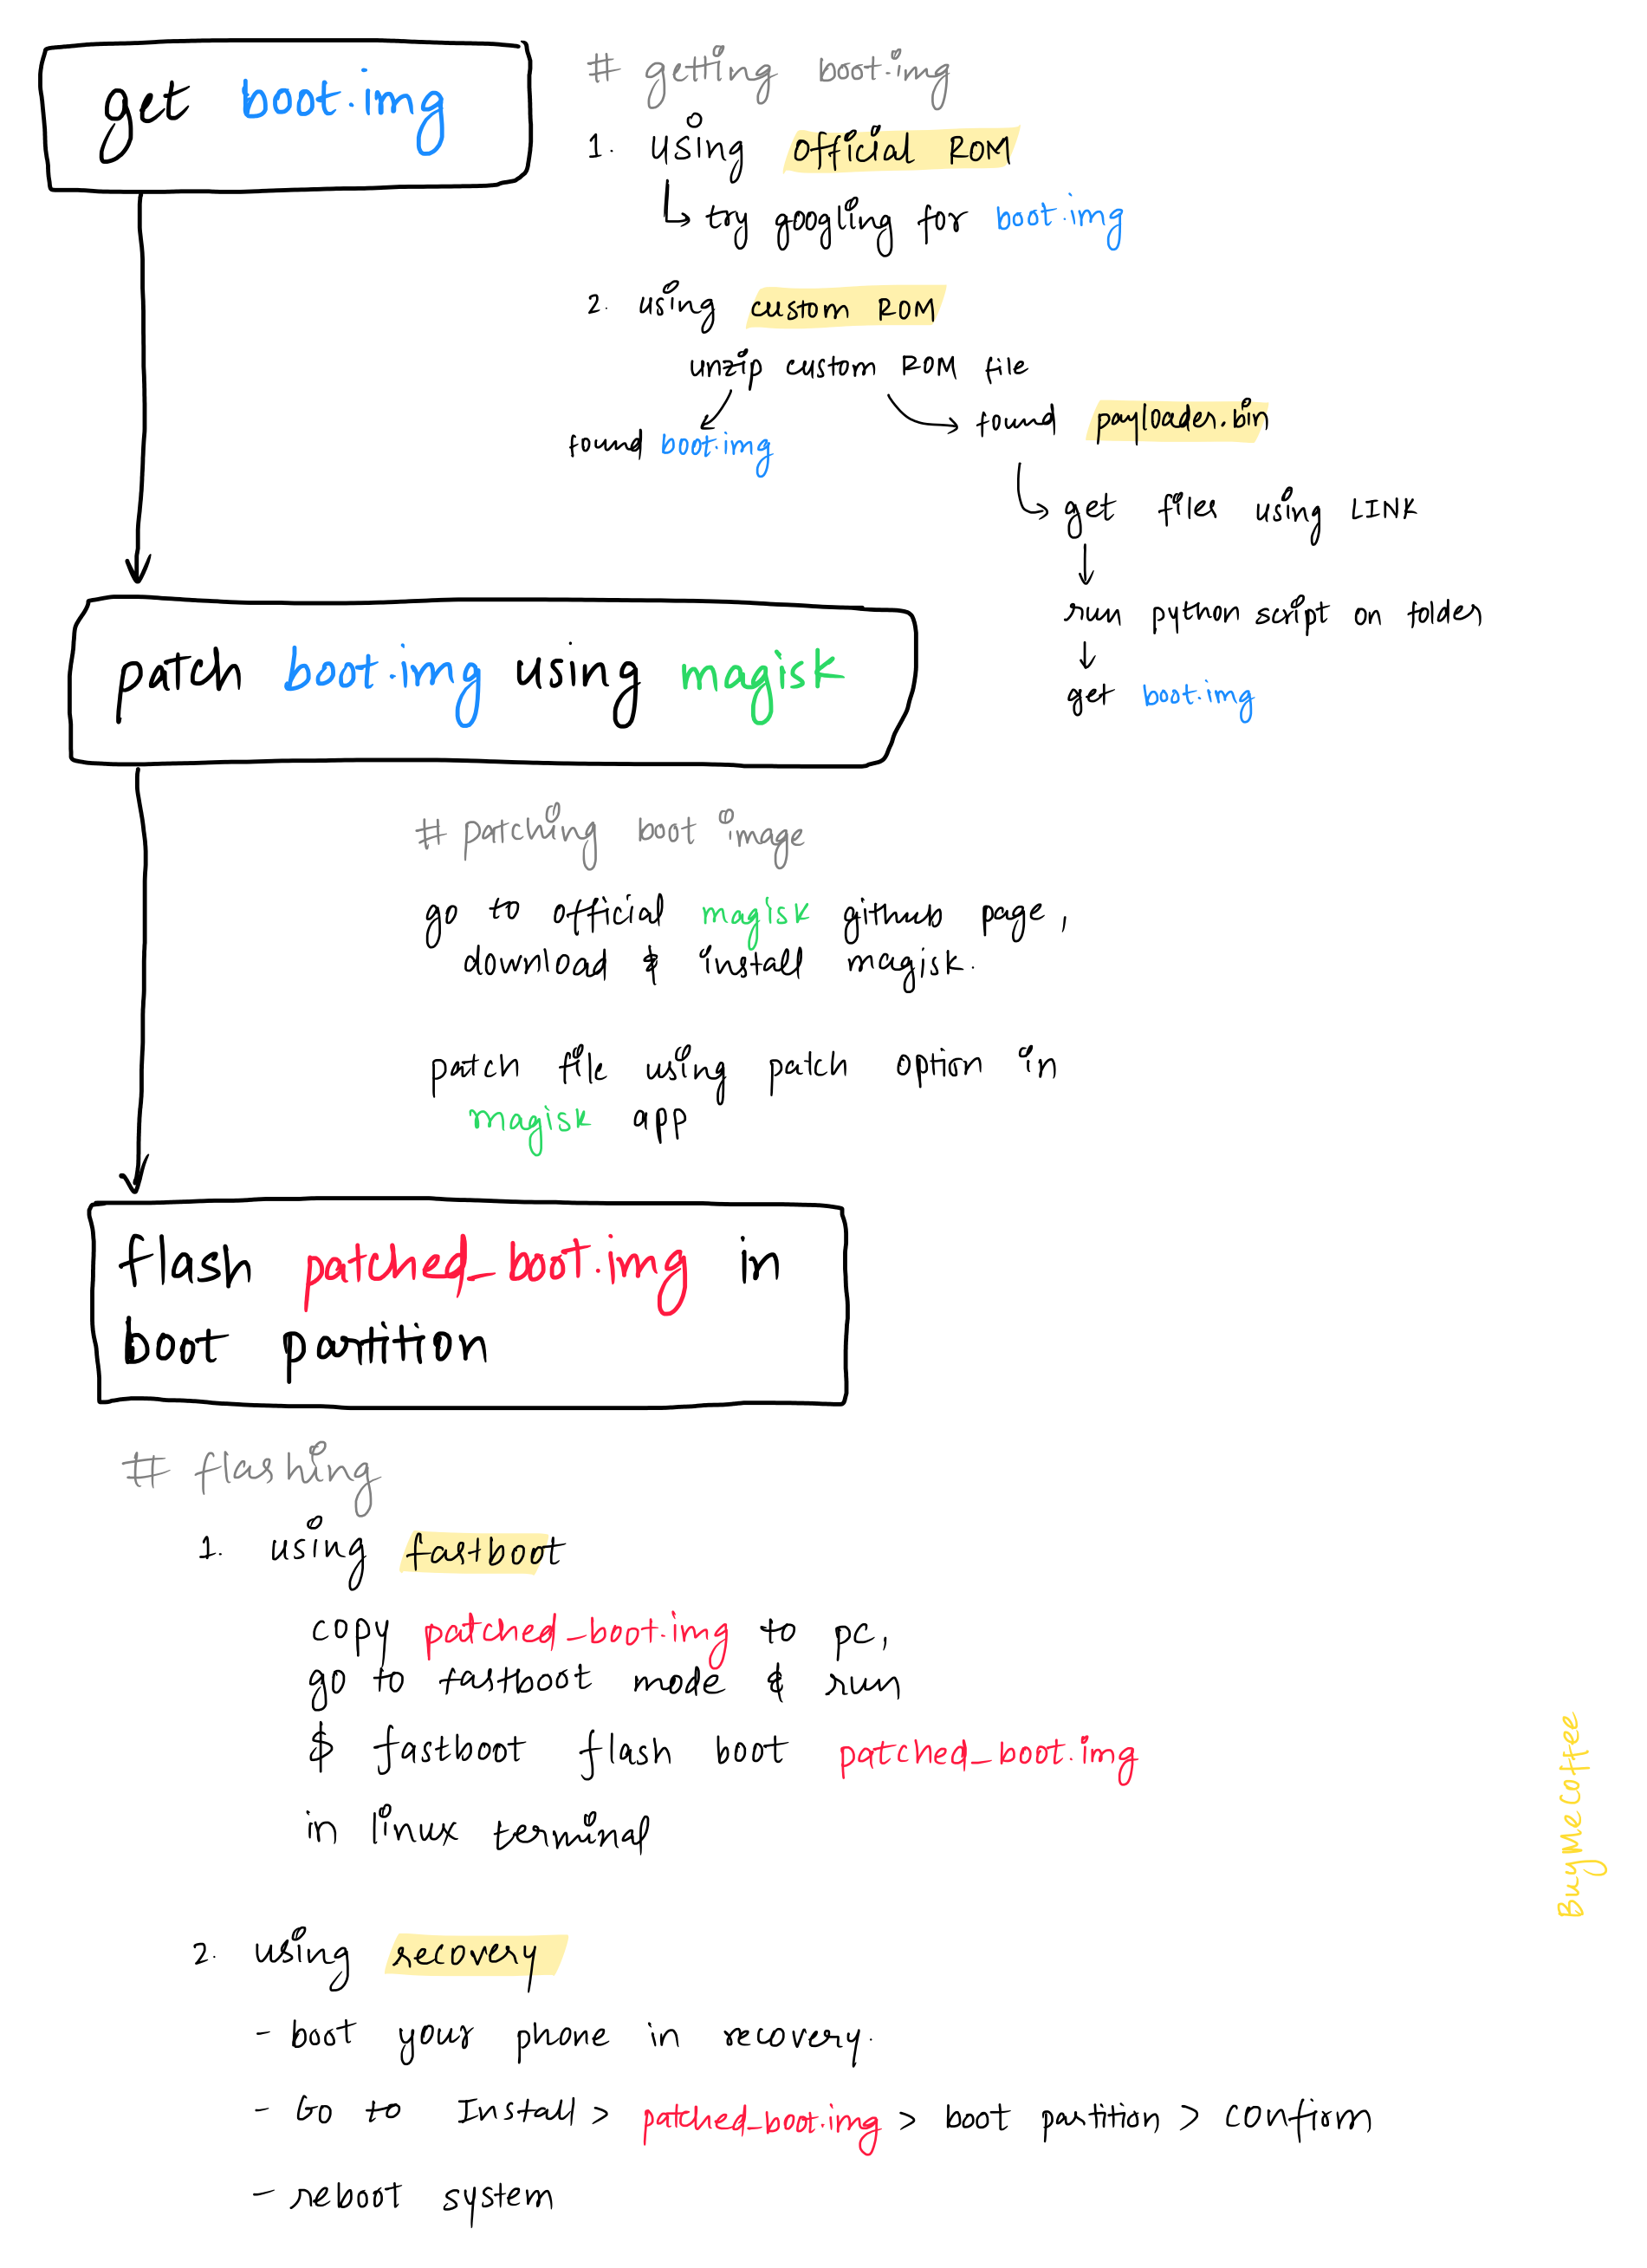 get boot.img
# getting boot.img
1. using official ROM
try googling for boot.img
2. using custom ROM
unzip custom ROM file
found boot.img
found payloader.bin
get files using LINK
run python script on folder
get boot.img
patch boot.img using magisk
# patching boot image
go to official magisk github page,
download & install magisk.
patch file using patch option in
magisk app
flash patched_boot.img in
boot partition
# flashing
1. using fastboot
copy patched_boot.img to pc,
go to fastboot mode & run
$ fastboot flash boot patched_boot.img
in linux terminal
2. using recovery
- boot your phone in recovery.
- Go to Install > patched_boot.img > boot partition > confirm
- reboot system
BuyMeCoffee